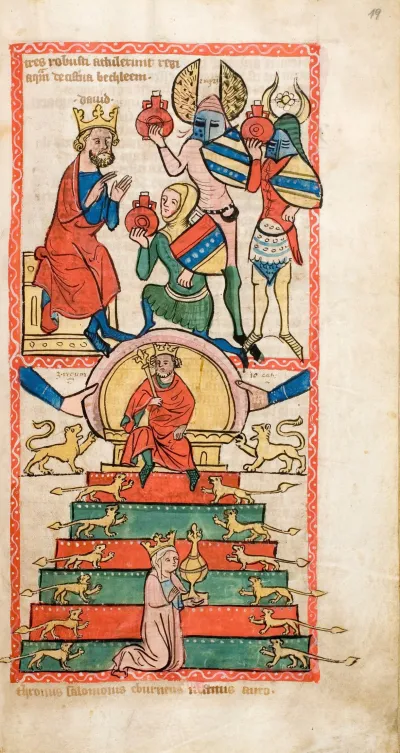 19
tres robusti attulerunt regi
aquā de cisterna bethleem.
.dauid.
thronus salomonis eburneus uestitus auro.